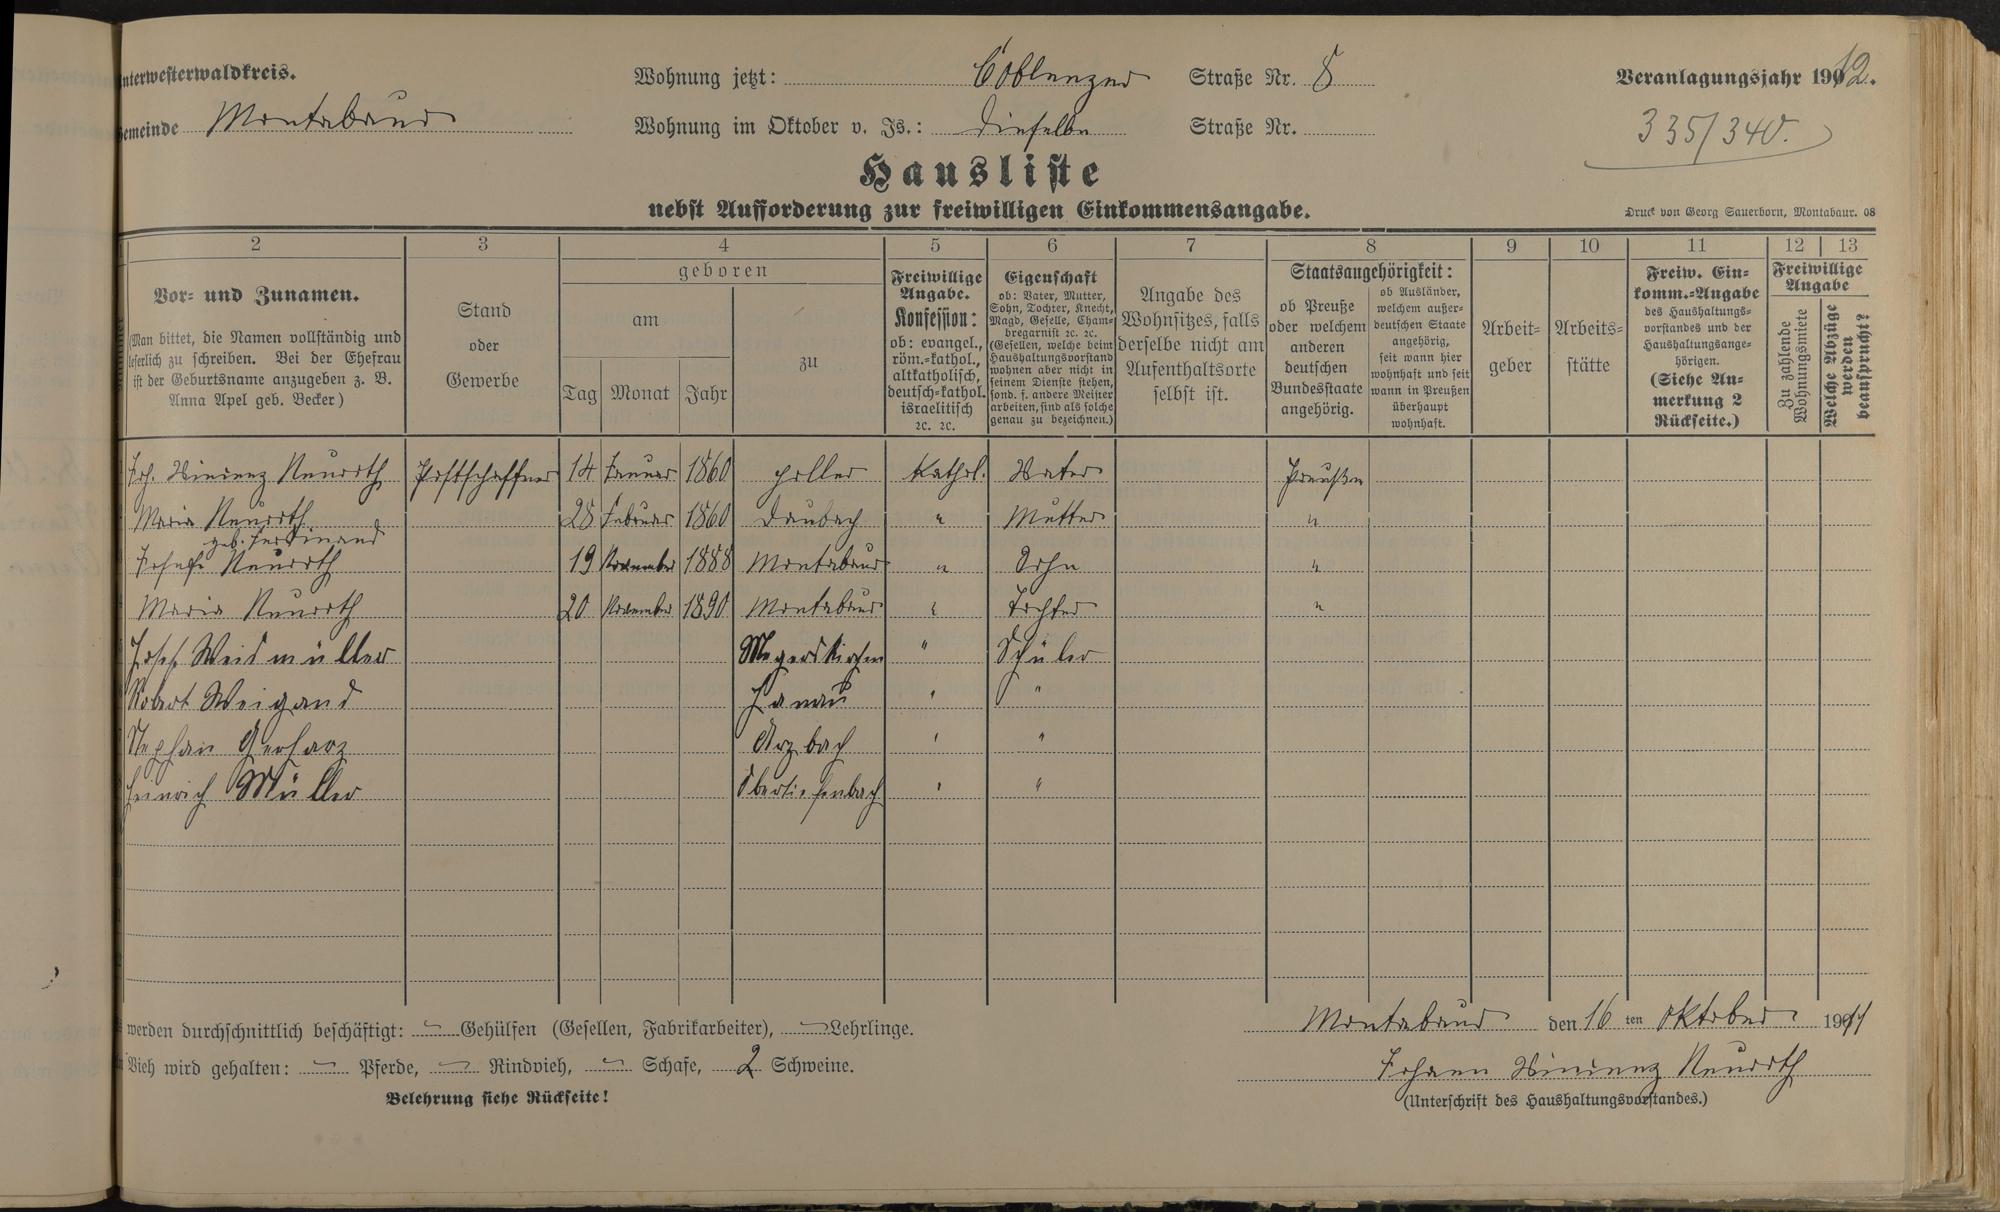 Unterwesterwaldkreis.
Wohnung jetzt: Coblenzer Straße Nr. 8
Veranlagungsjahr 1912.
Gemeinde Montabaur
Wohnung im Oktober v. Js.: dieselbe Straße Nr.
335/340.
Hausliste
nebst Aufforderung zur freiwilligen Einkommensangabe.
Druck von Georg Sauerborn, Montabaur. 08
1 2 3 4 5 6 7 8 9 10 11 12 13
Vor- und Zunamen.
(Man bittet, die Namen vollständig und
leserlich zu schreiben. Bei der Ehefrau
ist der Geburtsname anzugeben z. B.
Anna Apel geb. Becker)
Stand
oder
Gewerbe
geboren
am
Tag Monat Jahr
zu
Freiwillige
Angabe.
Konfession:
ob: evangel.,
röm.-kathol.,
altkatholisch,
deutsch-kathol.
israelitisch
ꝛc. ꝛc.
Eigenschaft
ob: Vater, Mutter,
Sohn, Tochter, Knecht,
Magd, Geselle, Cham-
bregarnist ꝛc. ꝛc.
(Gesellen, welche beim
Haushaltungsvorstand
wohnen aber nicht in
seinem Dienste stehen,
sond. f. andere Meister
arbeiten, sind als solche
genau zu bezeichnen.)
Angabe des
Wohnsitzes, falls
derselbe nicht am
Aufenthaltsorte
selbst ist.
Staatsangehörigkeit:
ob Preuße
oder welchem
anderen
deutschen
Bundesstaate
angehörig.
ob Ausländer,
welchem außer-
deutschen Staate
angehörig,
seit wann hier
wohnhaft und seit
wann in Preußen
überhaupt
wohnhaft.
Arbeit-
geber
Arbeits-
stätte
Freiw. Ein-
komm.-Angabe
des Haushaltungs-
vorstandes und der
Haushaltungsange-
hörigen.
(Siehe An-
merkung 2
Rückseite.)
Freiwillige
Angabe
Zu zahlende
Wohnungsmiete
Welche Abzüge
werden
beansprucht?
Joh. Vincenz Neuroth Postschaffner 14 Januar 1860 Holler Kathol. Vater Preußen
Maria Neuroth 28 Februar 1860 Daubach " Mutter "
geb. Ferdinand
Josefe Neuroth 19 November 1888 Montabaur " Sohn "
Maria Neuroth 20 November 1890 Montabaur " Tochter "
Josef Weidmüller " Schüler
Robert Weigand Hanau " "
Stephan Gerharz Arzbach " "
Heinrich Müller Obertiefenbach " "
werden durchschnittlich beschäftigt: — Gehülfen (Gesellen, Fabrikarbeiter), — Lehrlinge.
Montabaur den 16ten Oktober 1911
Vieh wird gehalten: — Pferde, — Rindvieh, — Schafe, 2 Schweine.
Johann Vincenz Neuroth
Belehrung siehe Rückseite!
(Unterschrift des Haushaltungsvorstandes.)